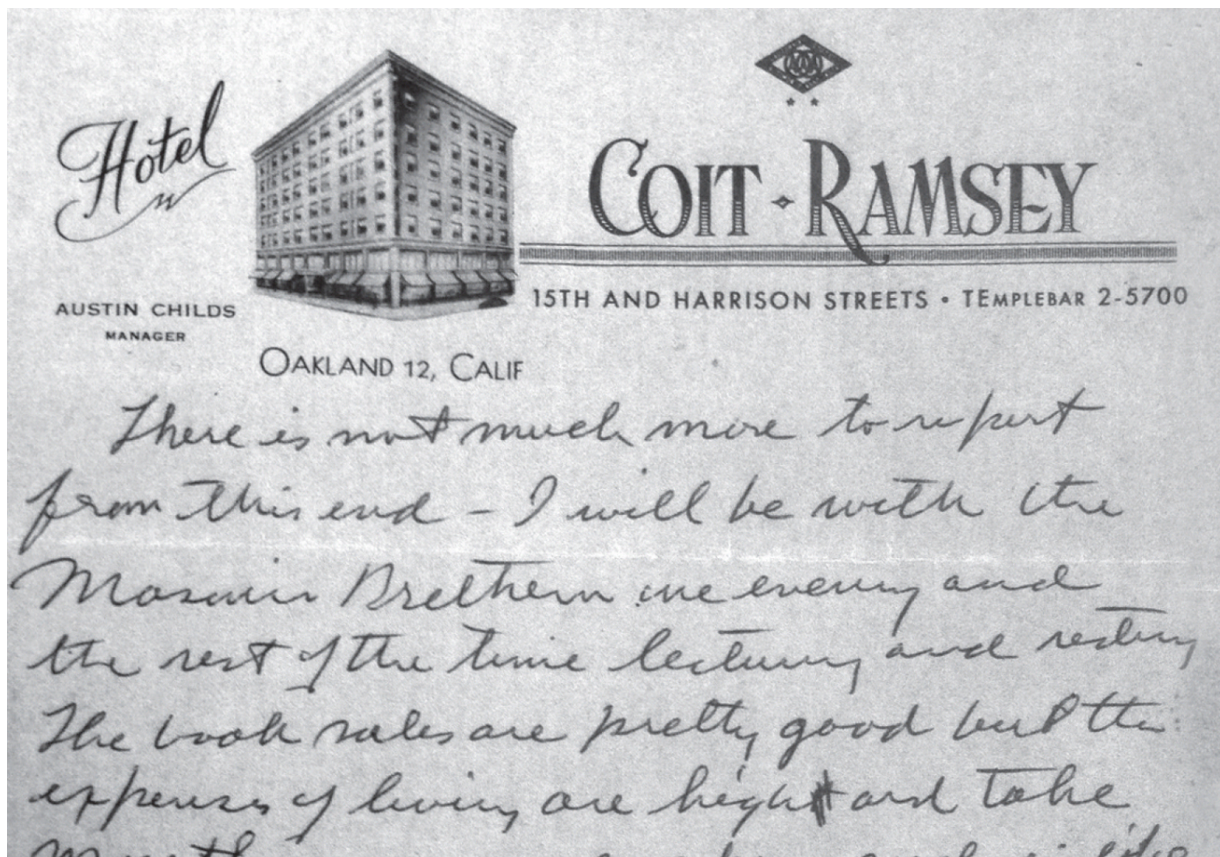 Hotel
COIT · RAMSEY
15TH AND HARRISON STREETS • TEMPLEBAR 2-5700
AUSTIN CHILDS
MANAGER
OAKLAND 12, CALIF
There is not much more to report
from this end – I will be with the
Masonic Brethern one evening and
the rest of the time lecturing and resting
The book sales are pretty good but the
expenses of living are high and take